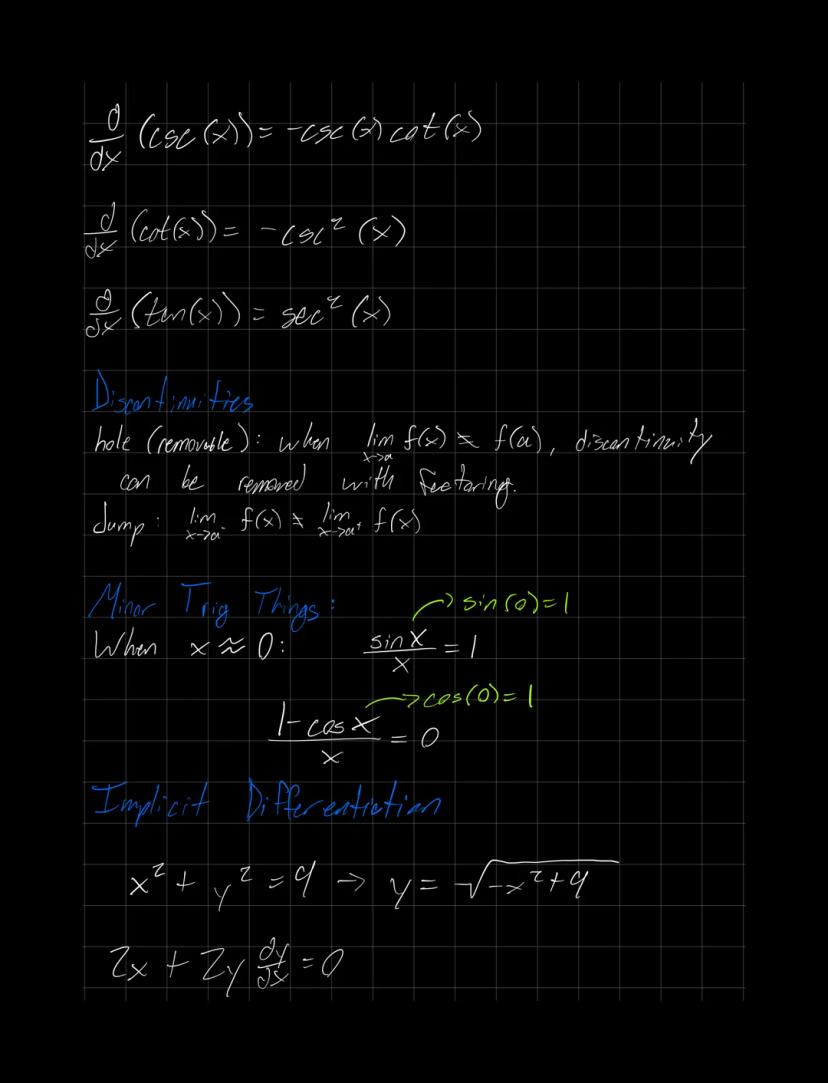 d/dx (csc(x)) = -csc(x) cot(x)
d/dx (cot(x)) = -csc² (x)
d/dx (tan(x)) = sec² (x)
Discontinuities
hole (removable): when lim x→a f(x) ≠ f(a), discontinuity
can be removed with factoring.
Jump: lim x→a⁻ f(x) ≠ lim x→a⁺ f(x)
Minor Trig Things:
→ sin(0)=1
When x ≈ 0: sinx/x = 1
→ cos(0)=1
1-cosx/x = 0
Implicit Differentiation
x² + y² = 9 → y = √-x²+9
2x + 2y dy/dx = 0